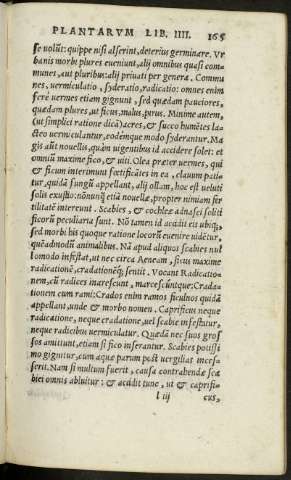 PLANTARVM LIB. IIII. 165
se volūt: quippe nisi asserint, deterius germinare. Vr
banis morbi plures eueniunt, alij omnibus quasi com-
munes, aut pluribus: alij priuati per genera. Commu
nes, vermiculatio, syderatio, radicatio: omnes enim
ferè vermes etiam gignunt, sed quædam pauciores,
quædam plures, ut ficus, malus, pirus. Minime autem,
(ut simplici ratione dicā) acres, & succo humētes la-
cteo vermiculantur, eodémque modo syderantur. Ma
gis aūt nouellis, quàm uigentibus id accidere solet: et
omniū maxime fico, & uiti. Olea præter uermes, qui
& ficum interimunt fœtificātes in ea, clauum patia-
tur, quidā fungū appellant, alij ollam, hoc est veluti
solis exustio: nōnunq̄ etiā nouellæ, propter nimiam fer
tilitatē intereunt. Scabies, & cochleæ adnasci soliti
ficorū peculiaria sunt. Nō tamen id accidit eis ubiq;,
sed morbi his quoque ratione locorū euenire uidētur,
quēadmodū animalibus. Nā apud aliquos scabies nul
lo modo infestat, ut nec circa Aeneam, ficus maxime
radicationē, cradationēq; sentit. Vocant Radicatio-
nem, cū radices inarescunt, marcescúntque: Crada-
tionem cum rami: Crados enim ramos ficulnos quidā
appellant, unde & morbo nomen. Caprificus neque
radicatione, neque cradatione, uel scabie infestatur,
neque radicibus vermiculatur. Quædā nec suos gros
sos amittunt, etiam si fico inserantur. Scabies potissi
mo gignitur, cum aquæ parum post vergilias inces-
serit. Nam si multum fuerit, causa contrahendæ sca
biei omnis abluitur: & accidit tunc, ut & caprifi-
l iij cus,